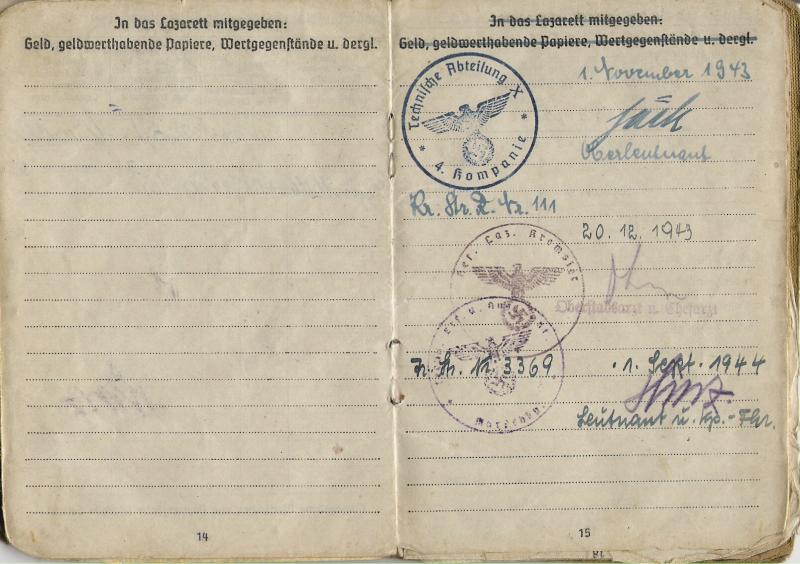 In das Lazarett mitgegeben:
Geld, geldwerthabende Papiere, Wertgegenstände u. dergl.
14
In das Lazarett mitgegeben:
Geld, geldwerthabende Papiere, Wertgegenstände u. dergl.
Technische Abteilung X
* 4. Kompanie *
1. November 1943
Oberleutnant
Kr. Str. Nr. 111
20. 12. 1943
Res. Laz. Kremsier
Oberstabsarzt u. Chefarzt
Nr. 3369
1. Sept. 1944
Leutnant u. Kp.-Fhr.
15